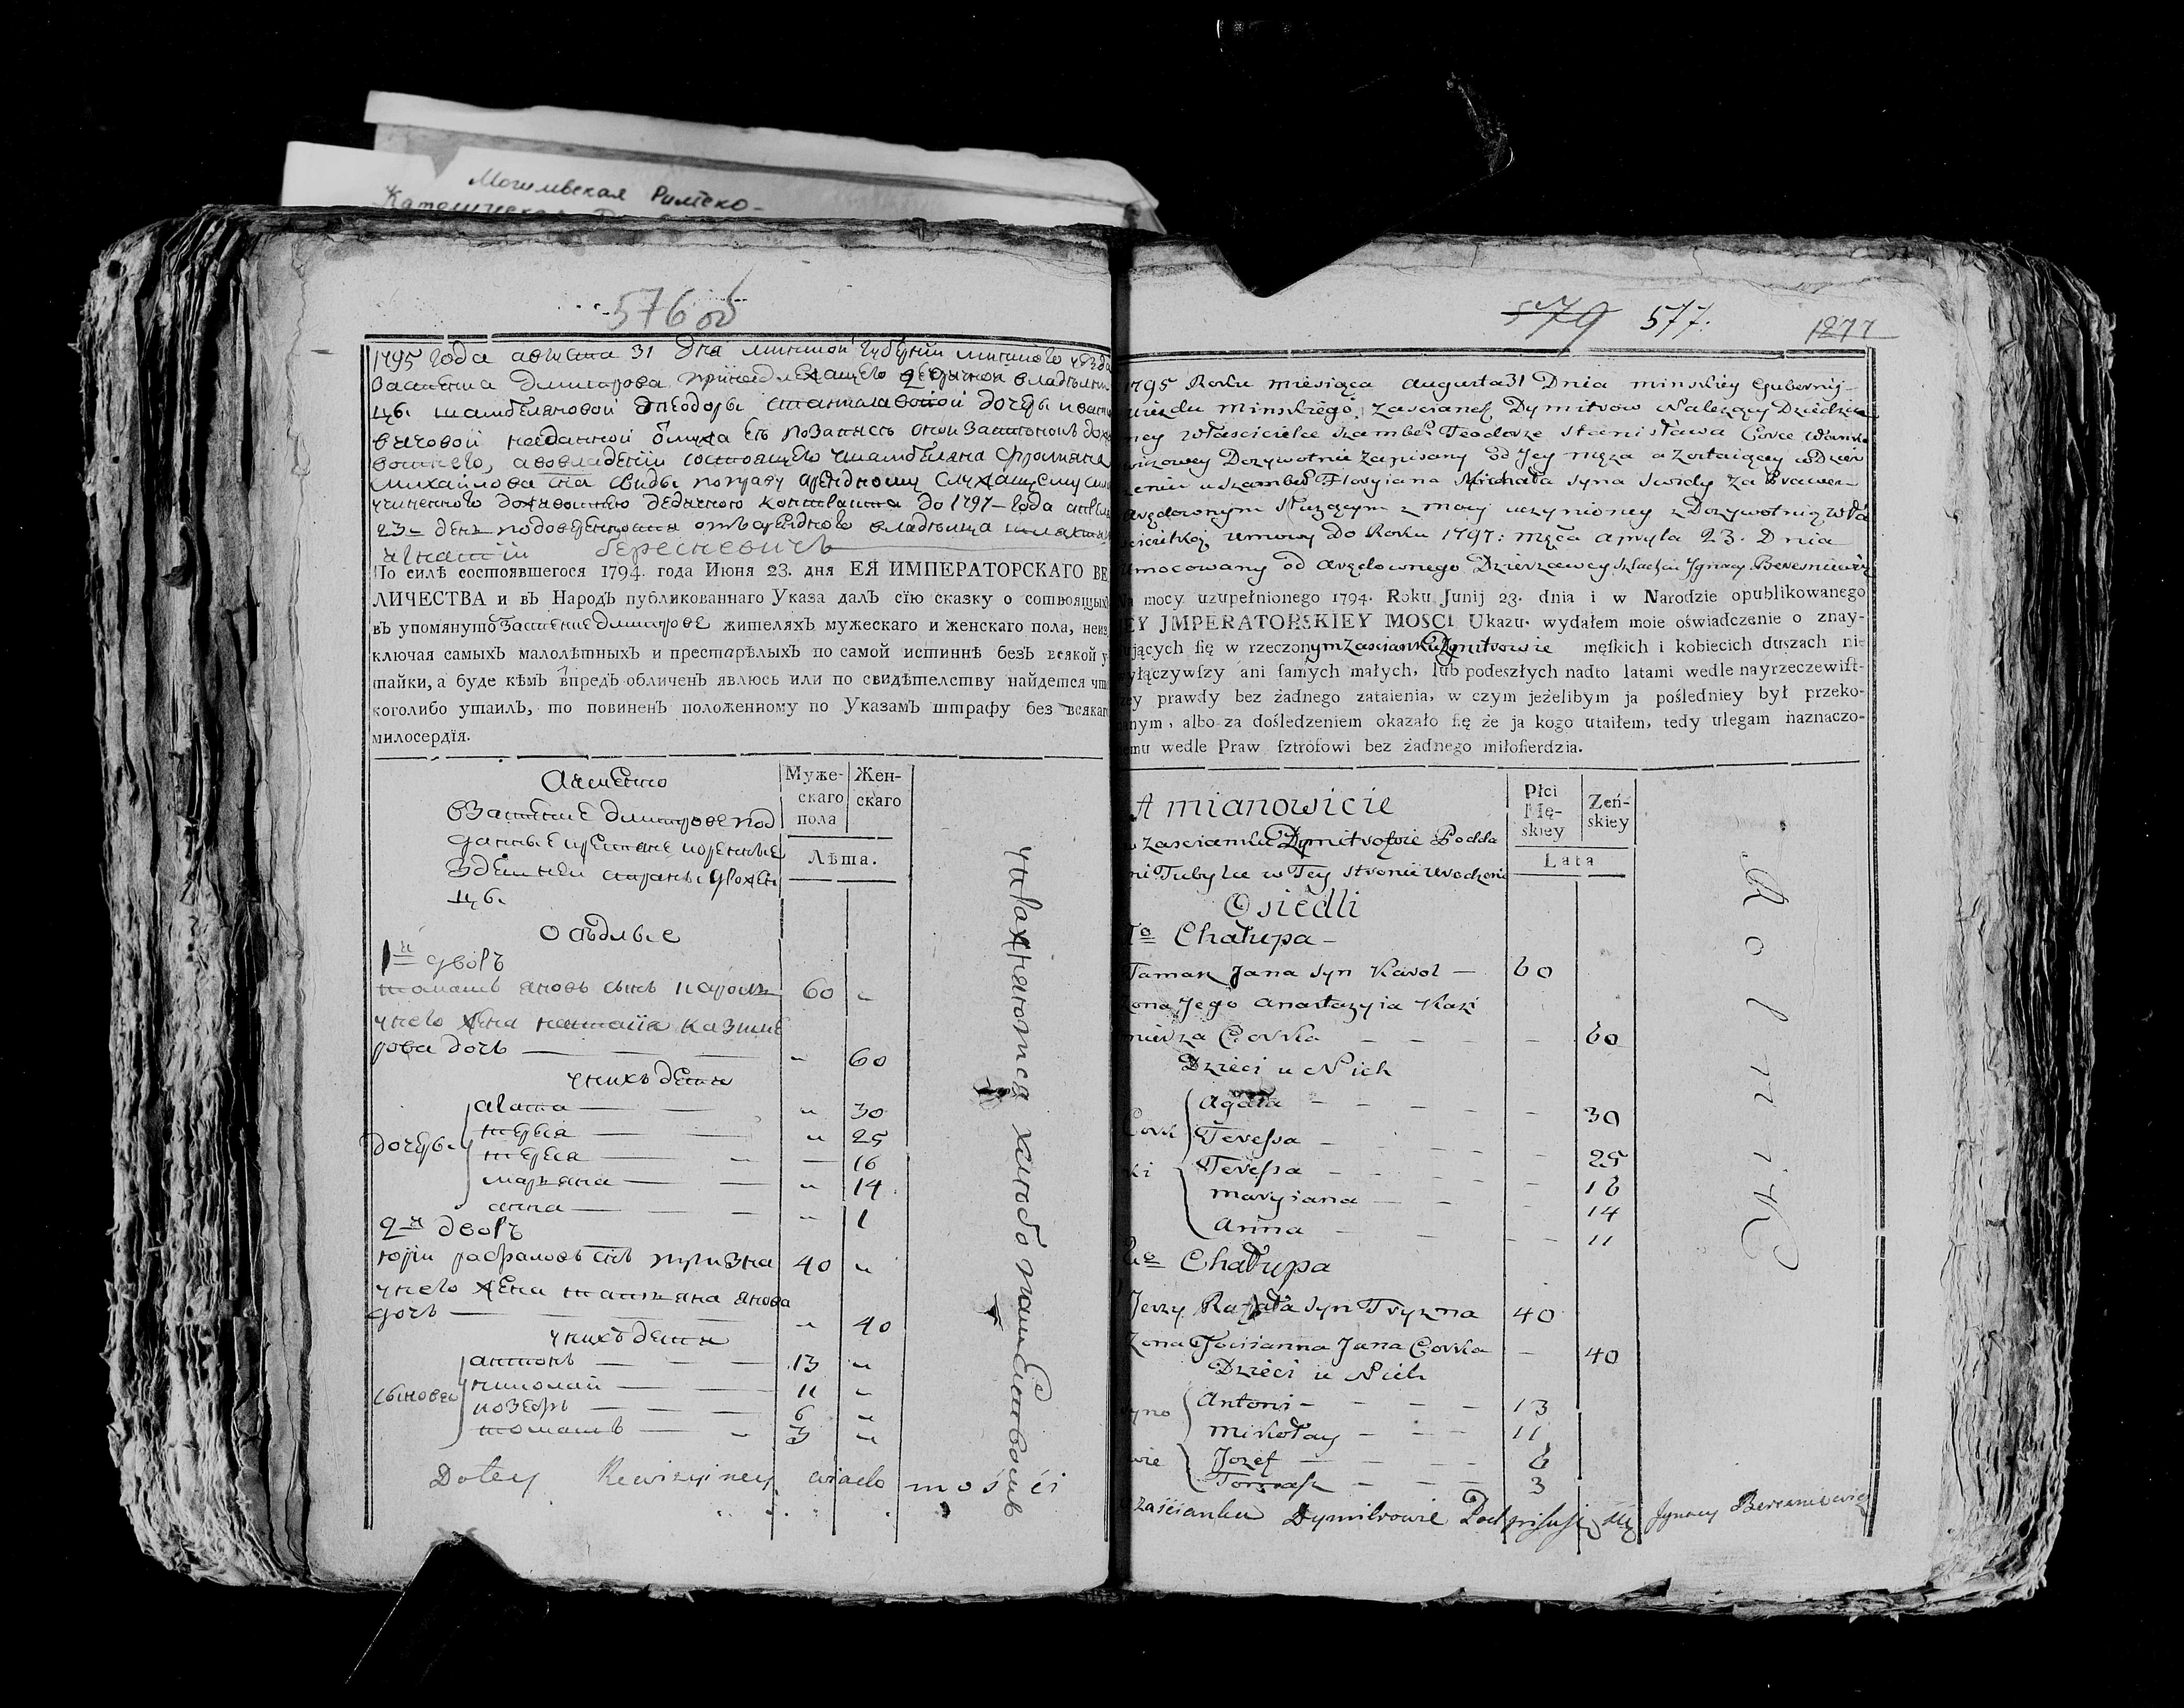 Могилевская Римско-
576 об
1795 года августа 31 дня минской губернии минского уезда
застенка дмитрова принадлежащего владелъ
цы шамбеляновой феодоры станиславовой дочеры
выговой
михайлова сына свиды поправу арендному служащему
до 1797 года
23 день от арендного владельца
игнатий бересневичъ
По силѣ состоявшегося 1794. года Июня 23. дня ЕЯ ИМПЕРАТОРСКАГО ВЕ
ЛИЧЕСТВА и въ Народъ публикованнаго Указа далъ сїю сказку о состоящыхъ
въ упомянуто застенке дмитрове жителяхъ мужескаго и женскаго пола, неис
ключая самыхъ малолѣтныхъ и престарѣлыхъ по самой истиннѣ безъ всякой у
тайки, а буде кѣмъ впредъ обличенъ явлюсь или по свидѣтелству найдется что
коголибо утаилъ, то повиненъ положенному по Указамъ штрафу без всякаго
милосердїя.
Аименно
взастенке дмитрове под
данные крестяне коренные
здешней стараны урожен
цы
Оседлые
Муже-
скаго
пола
Жен-
скаго
Лѣта.
1й дворъ
томашъ яновъ сынъ кароль 60 "
унего жена настасия казиме
рова дочь — — " 60
унихъ дети
дочеры
агата — — " 30
тереса — — " 25
тереса — — — 16
марьяна — — " 14
анна — — " 1
2й дворъ
юрьи рафаловъ снъ тризна 40 "
унего жена татьяна янова
дочь — — " 40
унихъ дети
сыновей
антонъ — — 13 "
николай — — 11 "
иозефъ — — 6 "
томашъ — — 3 "
упражняются хлебопашеством
Do tey Rewizyiney wiadomości
579 577.
1277
1795 Roku miesiąca augusta 31 Dnia minskiey Gubernij
uiezdu minskiego, zascianek Dymitrow Należący Dziedzicz
ney Włascicielce szambel Teodorze Stanisława Corce
Dozywotnie zapisany od Jey męza a zostaiący w Dzier
zeniu u szambel Floryiana Michała syna Swidy za Prawem
Arędownym Służącym z mocy uczynioney z Dozywotnią Wła
scicielką Umowy Do Roku 1797: mca apryla 23. Dnia
Umocowany od Arędownego Dzierzawcy Szlachcic Jgnacy Beresniewicz
Na mocy uzupełnionego 1794. Roku Junij 23. dnia i w Narodzie opublikowanego
EY JMPERATORSKIEY MOSCI Ukazu. wydałem moie oświadczenie o znay-
ujących się w rzeczonym zascianku Dymitrowie męſkich i kobiecich duszach nie
yłączywſzy ani ſamych małych, lub podeszłych nadto latami wedle nayrzeczewiſt-
zey prawdy bez żadnego zataienia, w czym jeżelibym ja poſledniey był przeko-
nanym, albo za dośledzeniem okazało ſię że ja kogo utaiłem, tedy ulegam naznaczo-
nemu wedle Praw ſztrofowi bez żadnego miłoſierdzia.
A mianowicie
w zascianku Dymitrowie Podda
ni Tubylce w Tey stronie Urodzeni
Osiedli
Płci
Mę-
skiey
Żeń-
skiey
Lata
1o Chałupa —
Tamasz Jana syn Karol — 60
zona Jego Anastazyia Kazi
mierza Corka — — 60
Dzieci u Nich
Cork
ki
Agata — — 30
Teressa — — 25
Teressa — — 16
maryiana — — 14
Anna — — 11
2o Chałupa
Jerzy Rafała syn Tryzna 40
Zona Tacianna Jana Corka — 40
Dzieci u Nich
Syno
wie
Antoni — — 13
mikołay — — 11
Jozef — — 6
Tomasz — — 3
Rolnik
zaścianku Dymitrowie Podpisuję się Jgnacy Beresniewicz